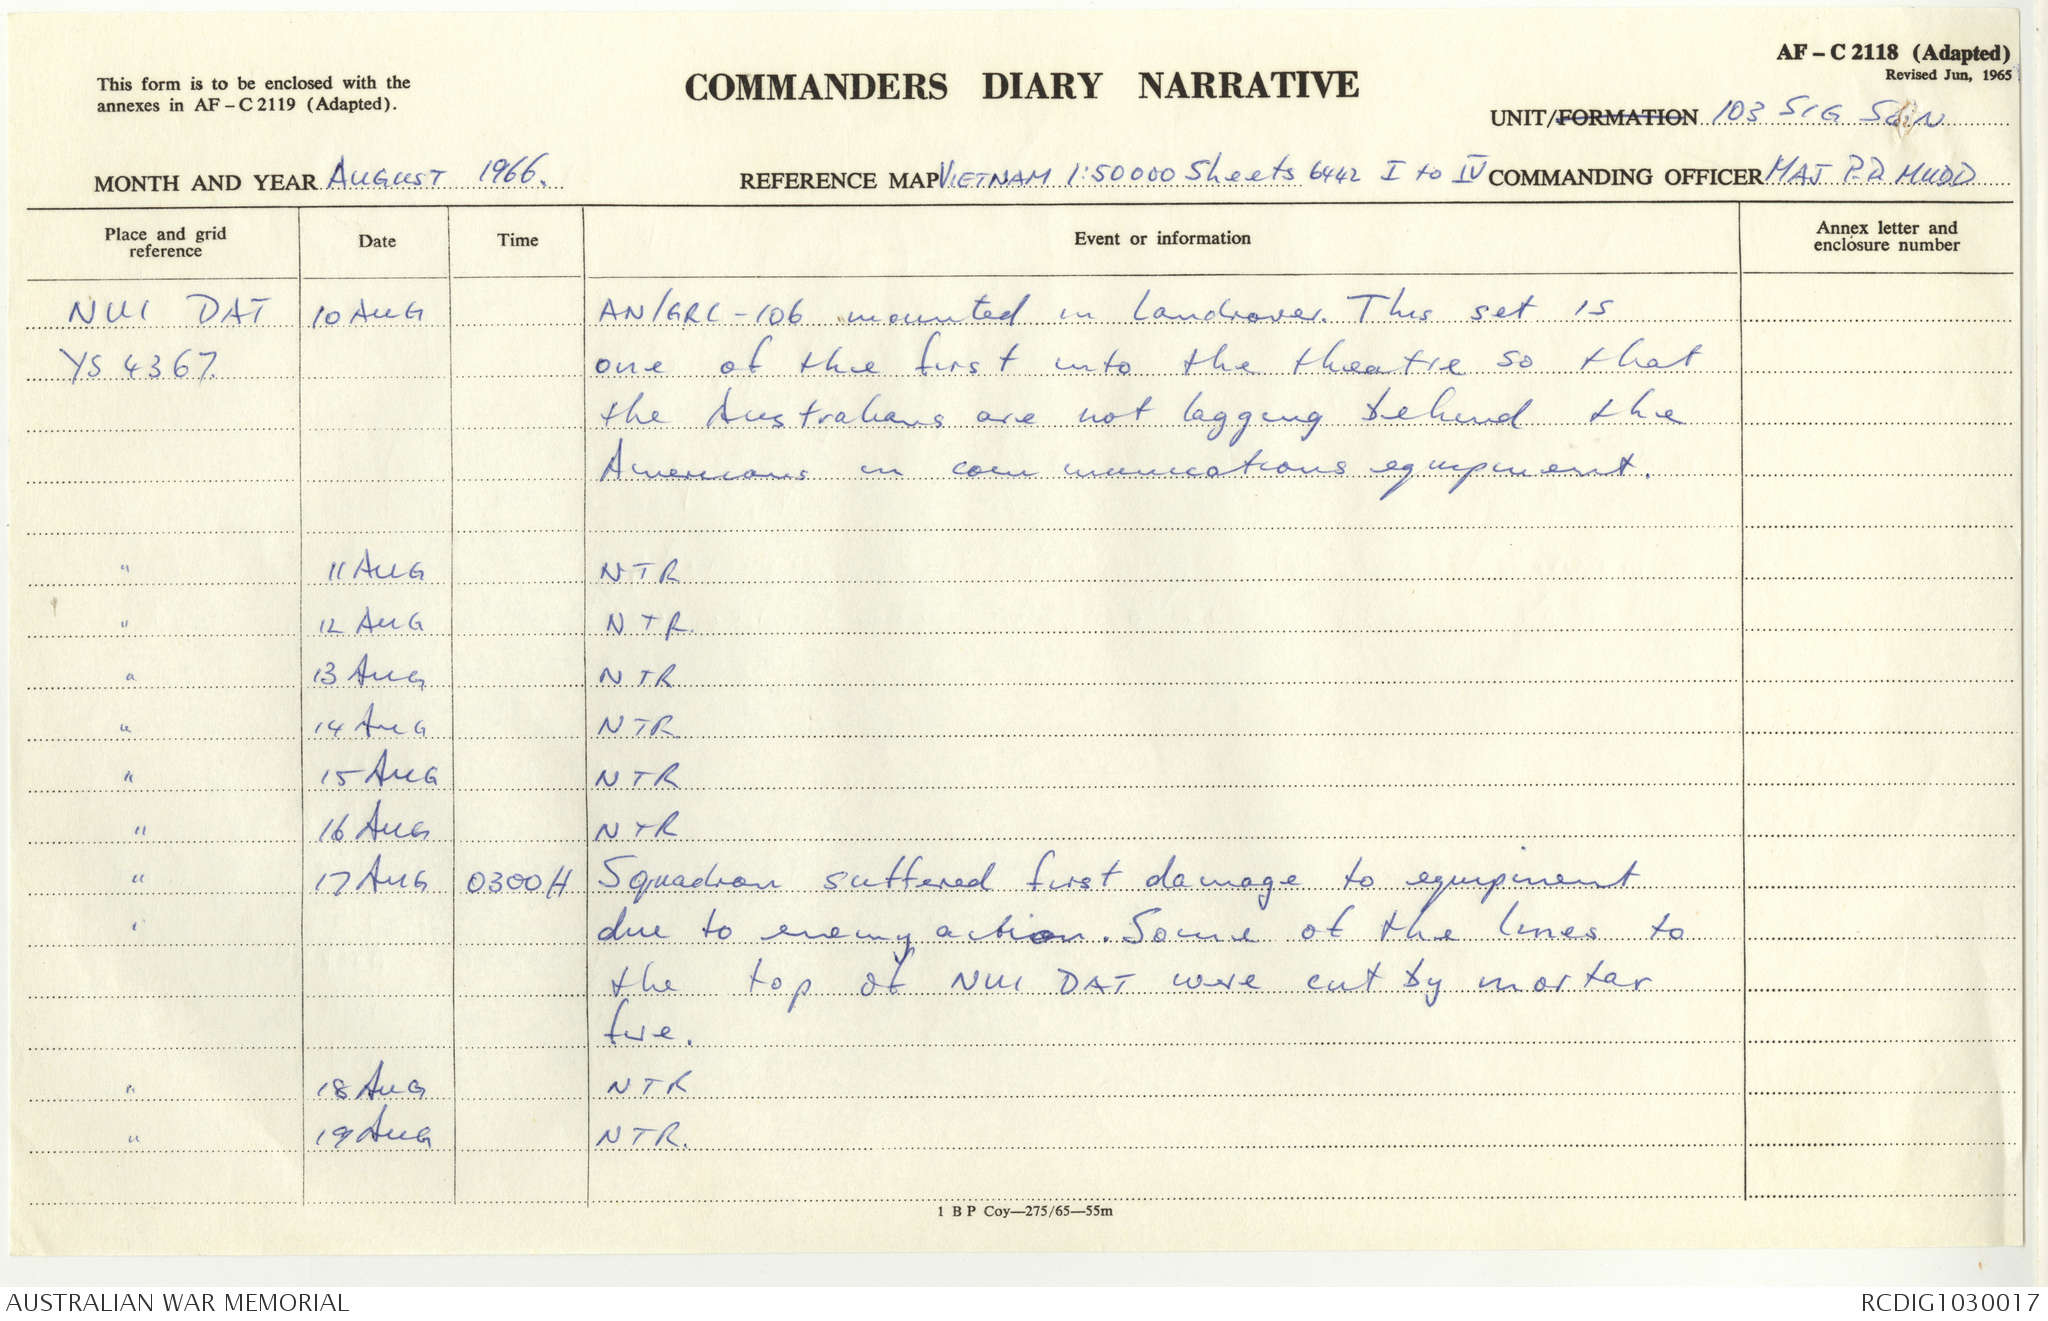 AF – C 2118 (Adapted)
Revised Jun, 1965
This form is to be enclosed with the
annexes in AF – C 2119 (Adapted).
COMMANDERS DIARY NARRATIVE
UNIT/FORMATION 103 SIG SQN
MONTH AND YEAR AUGUST 1966.
REFERENCE MAP VIETNAM 1:50000 Sheets 6442 I to IV
COMMANDING OFFICER MAJ P.D. MUDD
Place and grid
reference
Date
Time
Event or information
Annex letter and
enclosure number
NUI DAT 10 AUG AN/GRC-106 mounted in Landrover. This set is
YS 4367. one of the first into the theatre so that
the Australians are not lagging behind the
Americans in communications equipment.
" 11 AUG NTR
" 12 AUG NTR.
" 13 AUG NTR
" 14 AUG NTR
" 15 AUG NTR
" 16 AUG NTR
" 17 AUG 0300H Squadron suffered first damage to equipment
" due to enemy action. Some of the lines to
the top of NUI DAT were cut by mortar
fire.
" 18 AUG NTR
" 19 AUG NTR.
1 B P Coy—275/65—55m
AUSTRALIAN WAR MEMORIAL
RCDIG1030017